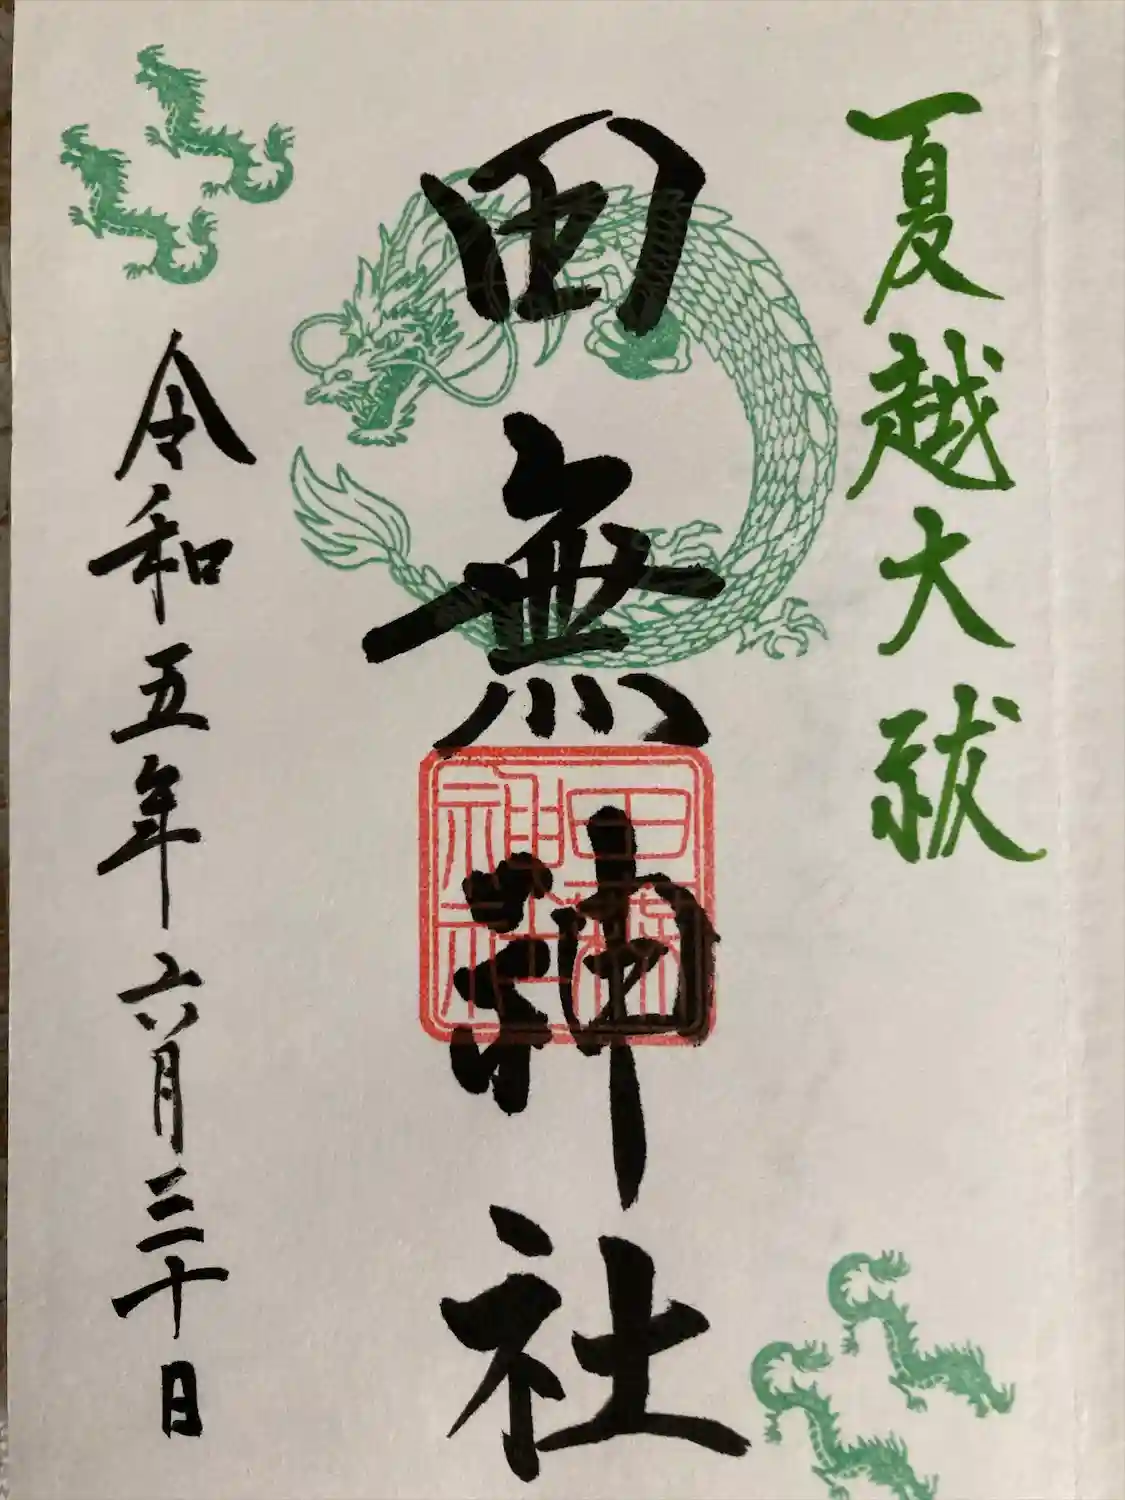 夏越大祓
田無神社
田無
神社
令和五年六月三十日